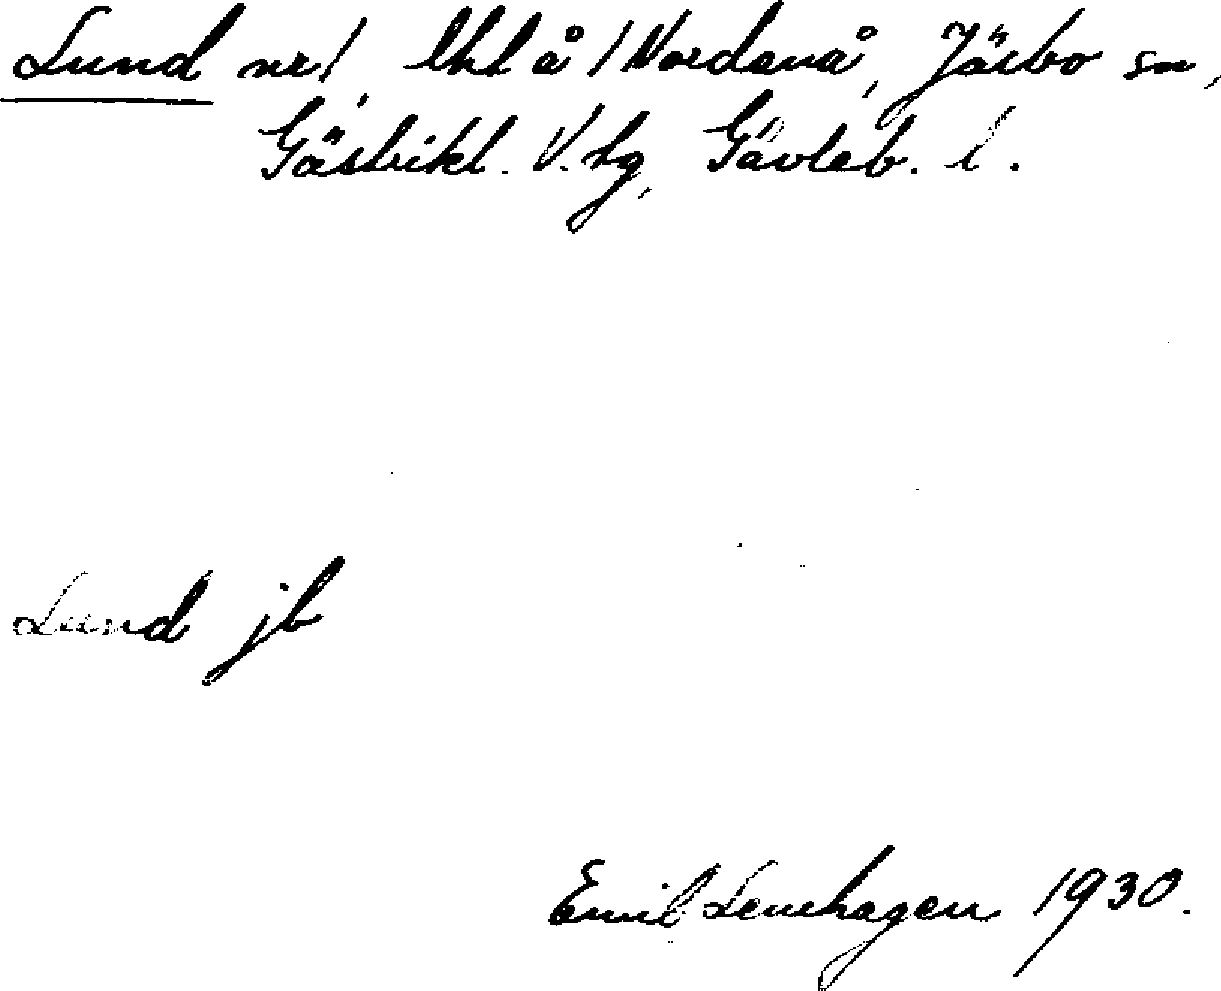 Lund nr 1, lht å 1 Nordanå, Järbo sn,
Gästrikl. V. tg, Gävleb. l.
Lund jb
Emil Lenehagen 1930.